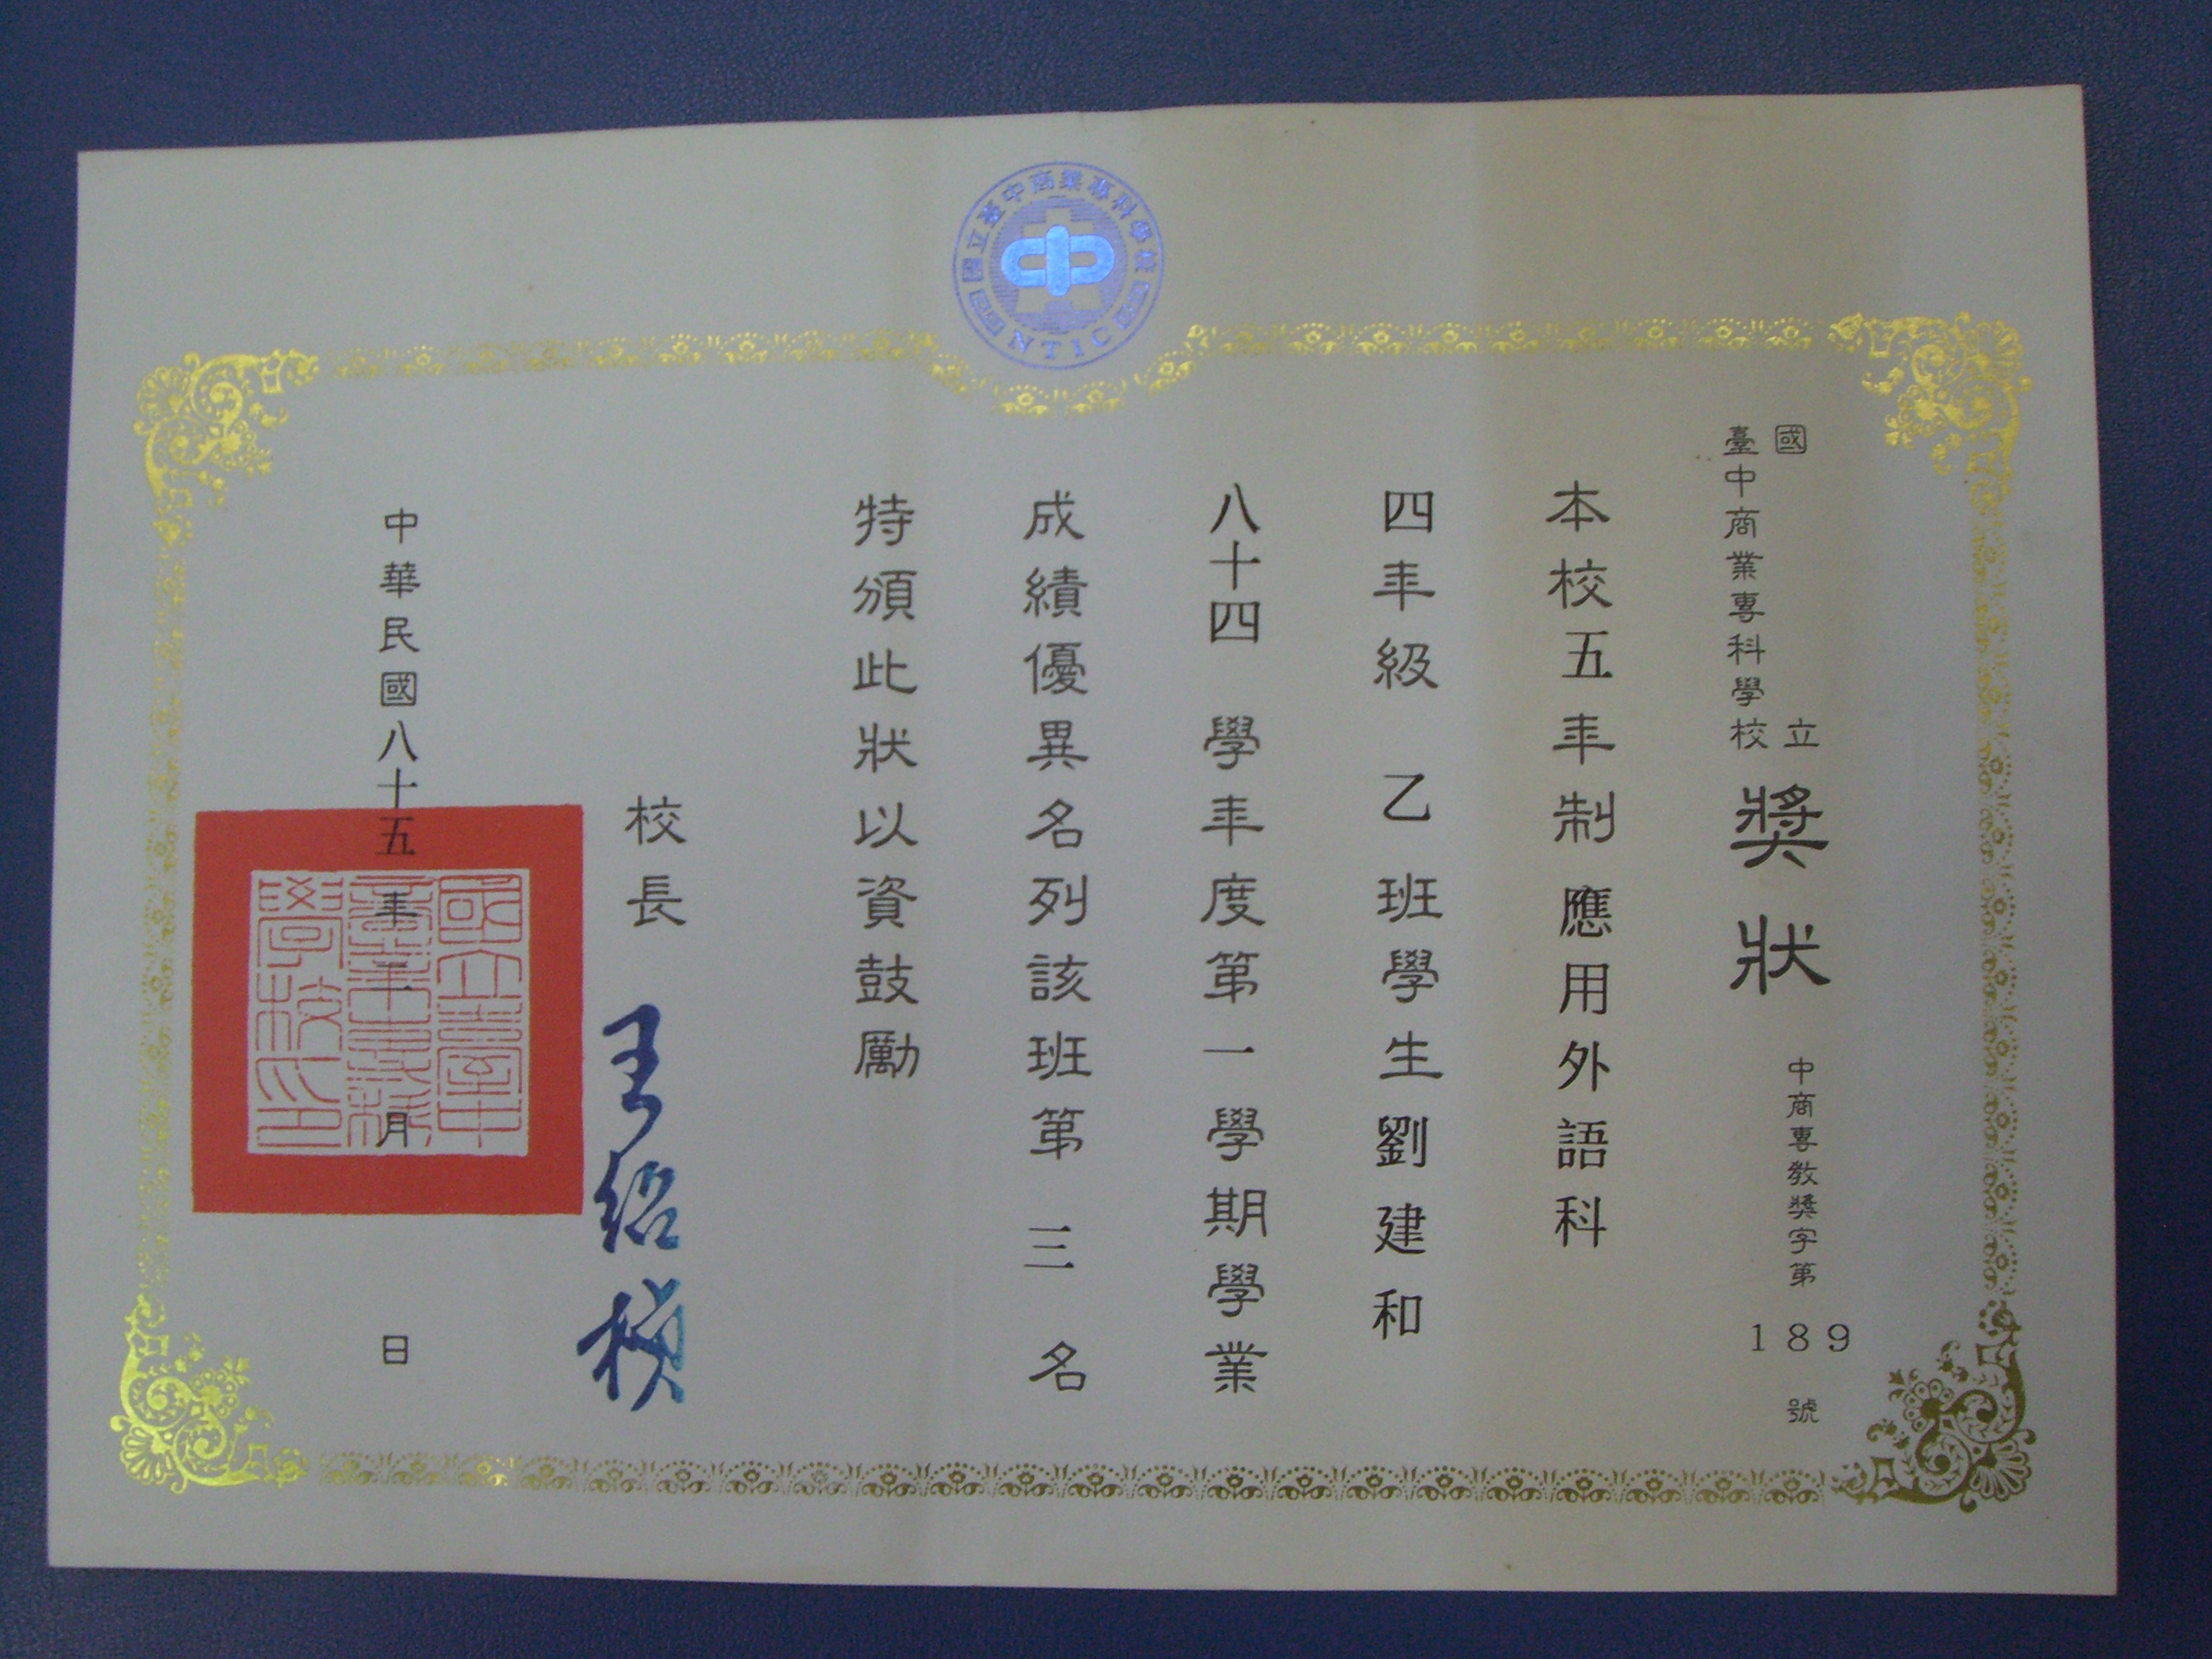 國立臺中商業專科學校
NTIC
國立
臺中商業專科學校
獎狀
中商專教獎字第189號
本校五年制應用外語科
四年級 乙班學生劉建和
八十四 學年度第一學期學業
成績優異名列該班第 三 名
特頒此狀以資鼓勵
校長 王紹楨
中華民國八十五年 月 日